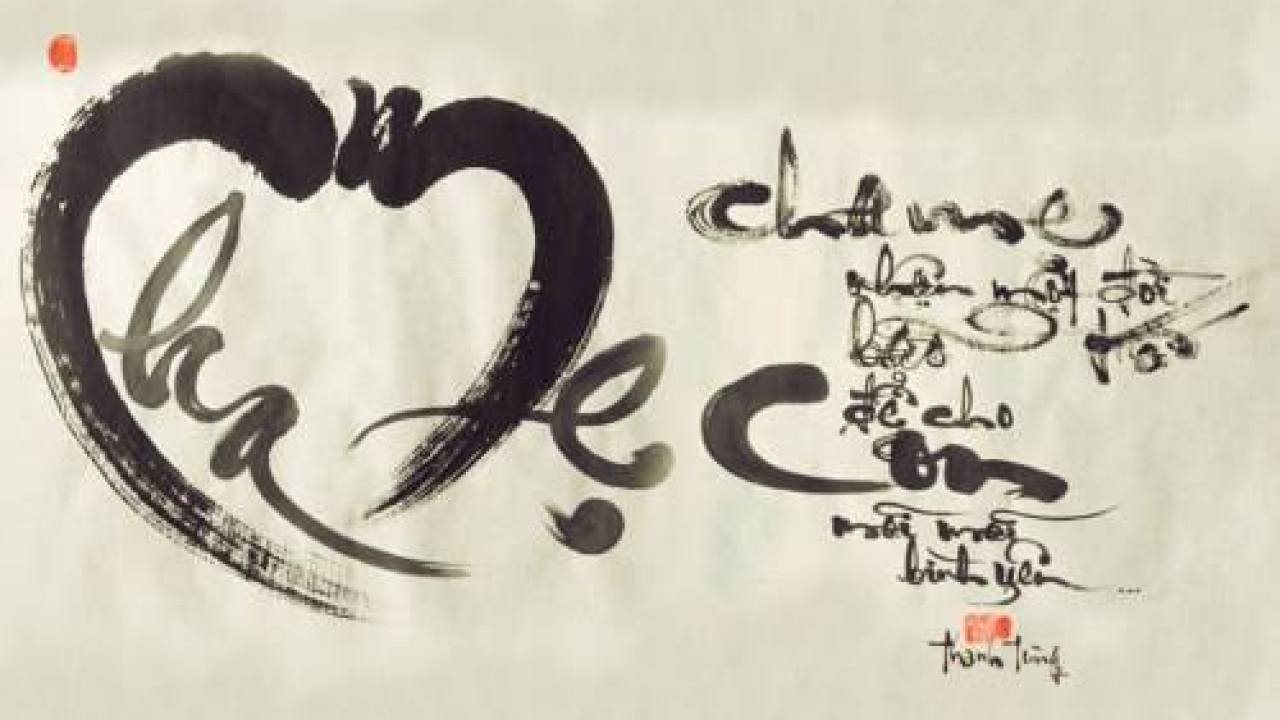 Cha Mẹ
cha mẹ
nhận một đời
bão tố
để cho
con
mãi mãi
bình yên ...
thanh tùng